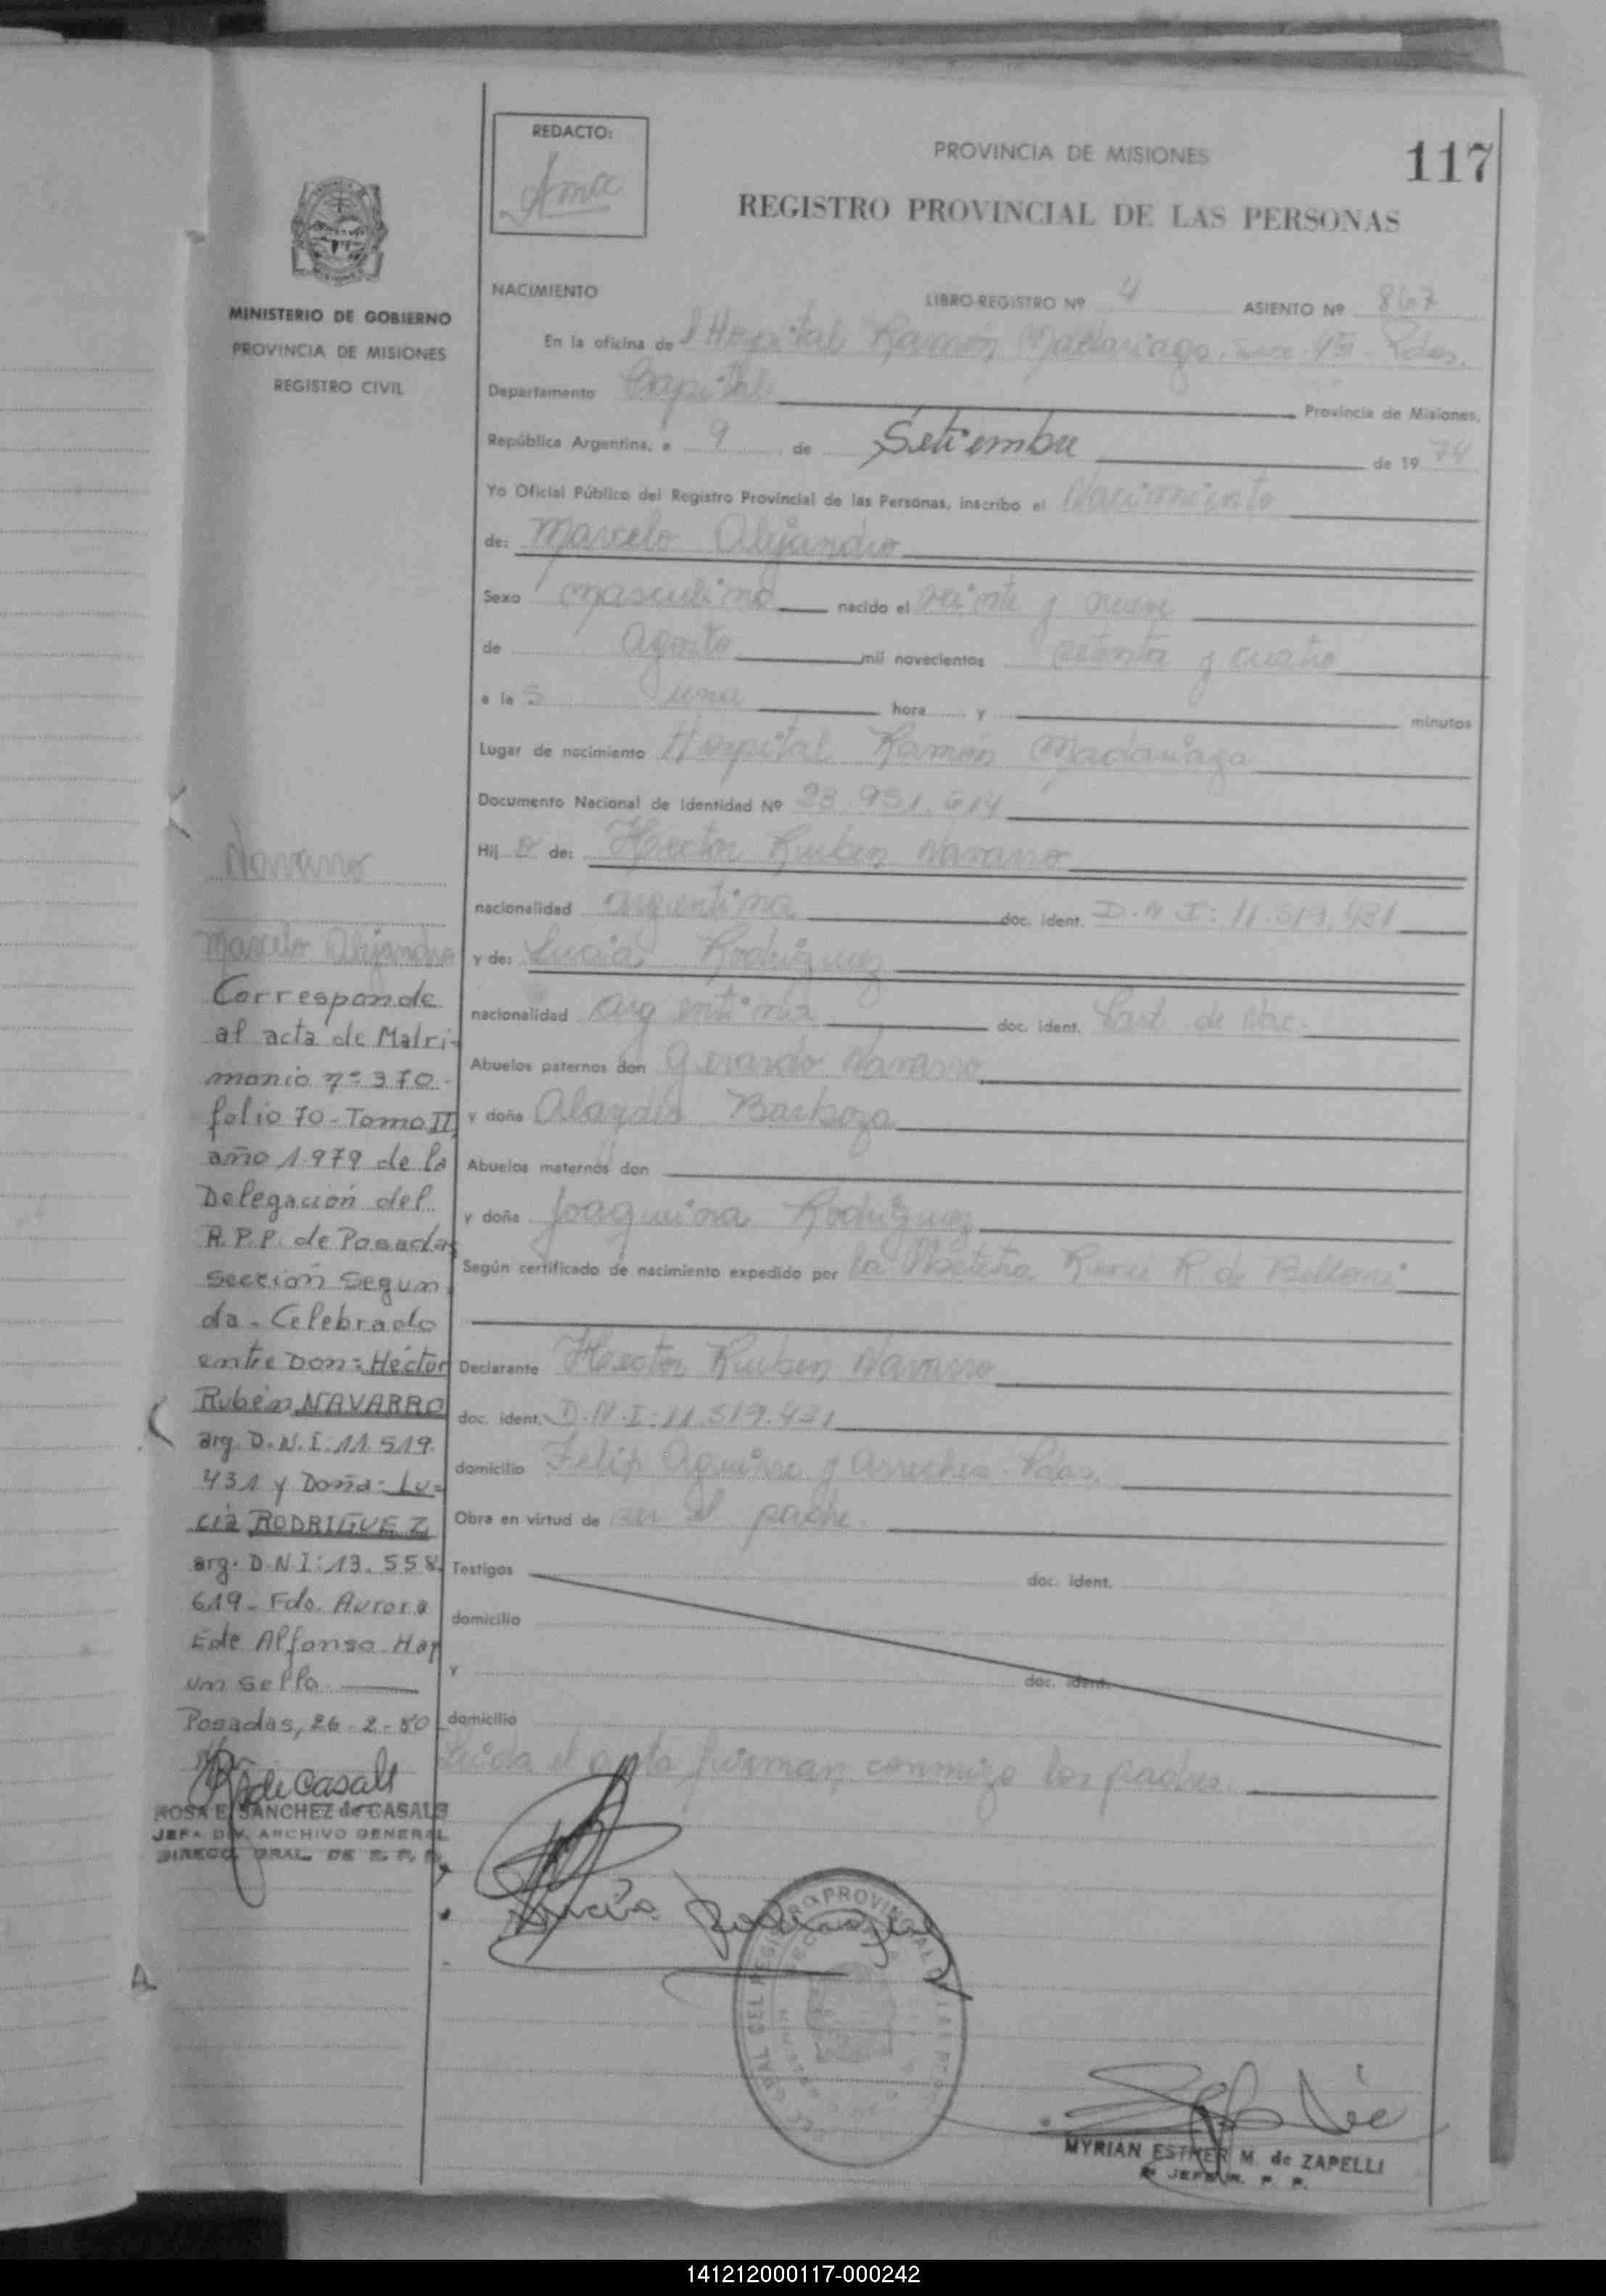 REDACTO:
PROVINCIA DE MISIONES
117
REGISTRO PROVINCIAL DE LAS PERSONAS
MINISTERIO DE GOBIERNO
PROVINCIA DE MISIONES
REGISTRO CIVIL
NACIMIENTO
LIBRO-REGISTRO Nº 4 ASIENTO Nº
En la oficina de l Hospital Ramón Madariaga
Departamento Capital Provincia de Misiones,
República Argentina, a 9 de Setiembre de 19 74
Yo Oficial Público del Registro Provincial de las Personas, inscribo el Nacimiento
de: Marcelo Alejandro
Sexo masculino nacido el veinte y nueve
de agosto mil novecientos setenta y cuatro
a la s una hora y minutos
Lugar de nacimiento Hospital Ramón Madariaga
Documento Nacional de Identidad Nº 23.951.614
Hij o de: Hector Ruben Navarro
nacionalidad argentina doc. ident. D.N.I: 11.519.431
y de: Lucia Rodriguez
nacionalidad argentina doc. ident. Part. de Nac.
Abuelos paternos don Gerardo Navarro
y doña Barboza
Abuelos maternos don
y doña Joaquina Rodriguez
Según certificado de nacimiento expedido por la R. de Belloni
Declarante Hector Ruben Navarro
doc. ident. D.N.I: 11.519.431
domicilio Felip Aguirre y Arrechea - Pdas.
Obra en virtud de ser el padre.
Testigos doc. ident.
domicilio
y doc. ident.
domicilio
Leida el acta firman conmigo los padres.
Lucia Rodriguez
MYRIAN ESTHER M. de ZAPELLI
JEFE R. P. P.
Navarro
Marcelo Alejandro
Corresponde
al acta de Matri-
monio nº 370-
folio 70-Tomo II,
año 1.979 de la
Delegación del
R.P.P. de Posadas
Sección Segun
da - Celebrado
entre Don: Héctor
Rubén NAVARRO
arg. D.N.I: 11.519.
431 y Doña: Lu-
cia RODRIGUEZ
arg. D.N.I: 13.558.
619 - Fdo. Aurora
Ede Alfonso Hay
un sello
Posadas, 26-2-80
de Casals
ROSA E. SANCHEZ de CASALS
JEFA DIV. ARCHIVO GENERAL
DIRECC. GRAL. DE R. P. P.
141212000117-000242